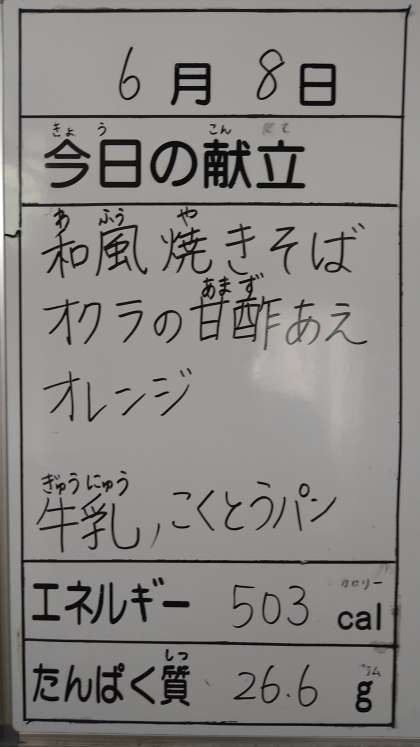 6月8日
きょう こん だて
今日の献立
わ ふう や
和風焼きそば
あま ず
オクラの甘酢あえ
オレンジ
ぎゅうにゅう
牛乳,こくとうパン
カロリー
エネルギー 503 cal
しつ グラム
たんぱく質 26.6 g